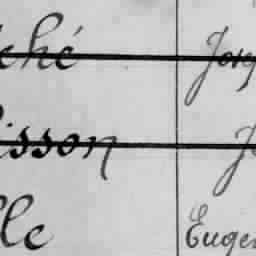 ché Jose
isson J
lle Eugen